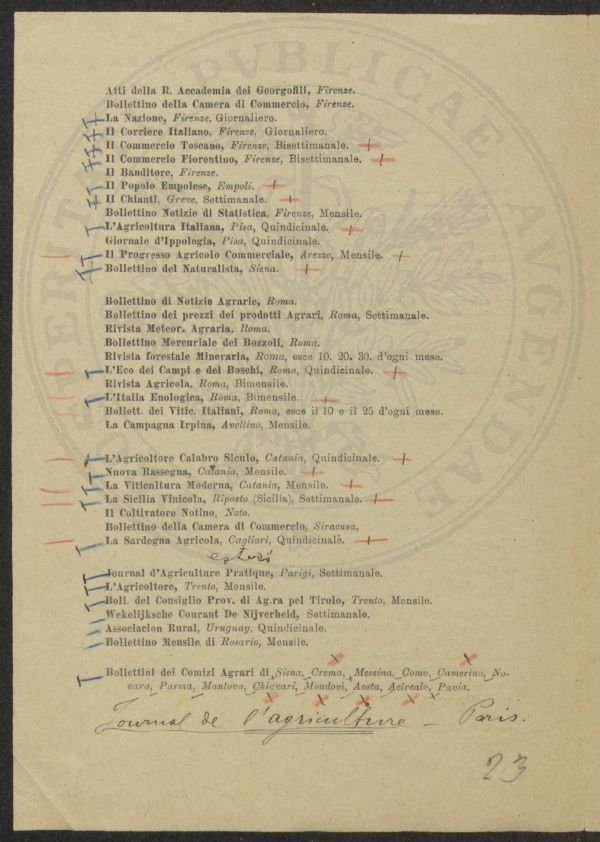 Atti della R. Accademia dei Georgofili, Firenze.
Bollettino della Camera di Commercio, Firenze.
La Nazione, Firenze, Giornaliero.
Il Corriere Italiano, Firenze, Giornaliero.
Il Commercio Toscano, Firenze, Bisettimanale.
Il Commercio Fiorentino, Firenze, Bisettimanale.
Il Banditore, Firenze.
Il Popolo Empolese, Empoli.
Il Chianti, Greve, Settimanale.
Bollettino Notizie di Statistica, Firenze, Mensile.
L'Agricoltura Italiana, Pisa, Quindicinale.
Giornale d'Ippologia, Pisa, Quindicinale.
Il Progresso Agricolo Commerciale, Arezzo, Mensile.
Bollettino del Naturalista, Siena.
Bollettino di Notizie Agrarie, Roma.
Bollettino dei prezzi dei prodotti Agrari, Roma, Settimanale.
Rivista Meteor. Agraria, Roma.
Bollettino Mercuriale dei Bozzoli, Roma.
Rivista forestale Mineraria, Roma, esce 10. 20. 30. d'ogni mese.
L'Eco dei Campi e dei Boschi, Roma, Quindicinale.
Rivista Agricola, Roma, Bimensile.
L'Italia Enologica, Roma, Bimensile.
Bollett. dei Vitic. Italiani, Roma, esce il 10 e il 25 d'ogni mese.
La Campagna Irpina, Avellino, Mensile.
L'Agricoltore Calabro Siculo, Catania, Quindicinale.
Nuova Rassegna, Catania, Mensile.
La Viticultura Moderna, Catania, Mensile.
La Sicilia Vinicola, Riposto (Sicilia), Settimanale.
Il Coltivatore Notino, Noto.
Bollettino della Camera di Commercio, Siracusa,
La Sardegna Agricola, Cagliari, Quindicinale.
esteri
Journal d'Agriculture Pratique, Parigi, Settimanale.
L'Agricoltore, Trento, Mensile.
Boll. del Consiglio Prov. di Ag.ra pel Tirolo, Trento, Mensile.
Wekelijksche Courant De Nijverheid, Settimanale.
Associacion Rural, Urugnay, Quindicinale.
Bollettino Mensile di Rosario, Mensile.
Bollettini dei Comizi Agrari di Siena, Crema, Messina, Como, Camerino, No-
vara, Parma, Mantova, Chiavari, Mondovì, Aosta, Acireale, Pavia.
Journal de l'agriculture - Paris.
23